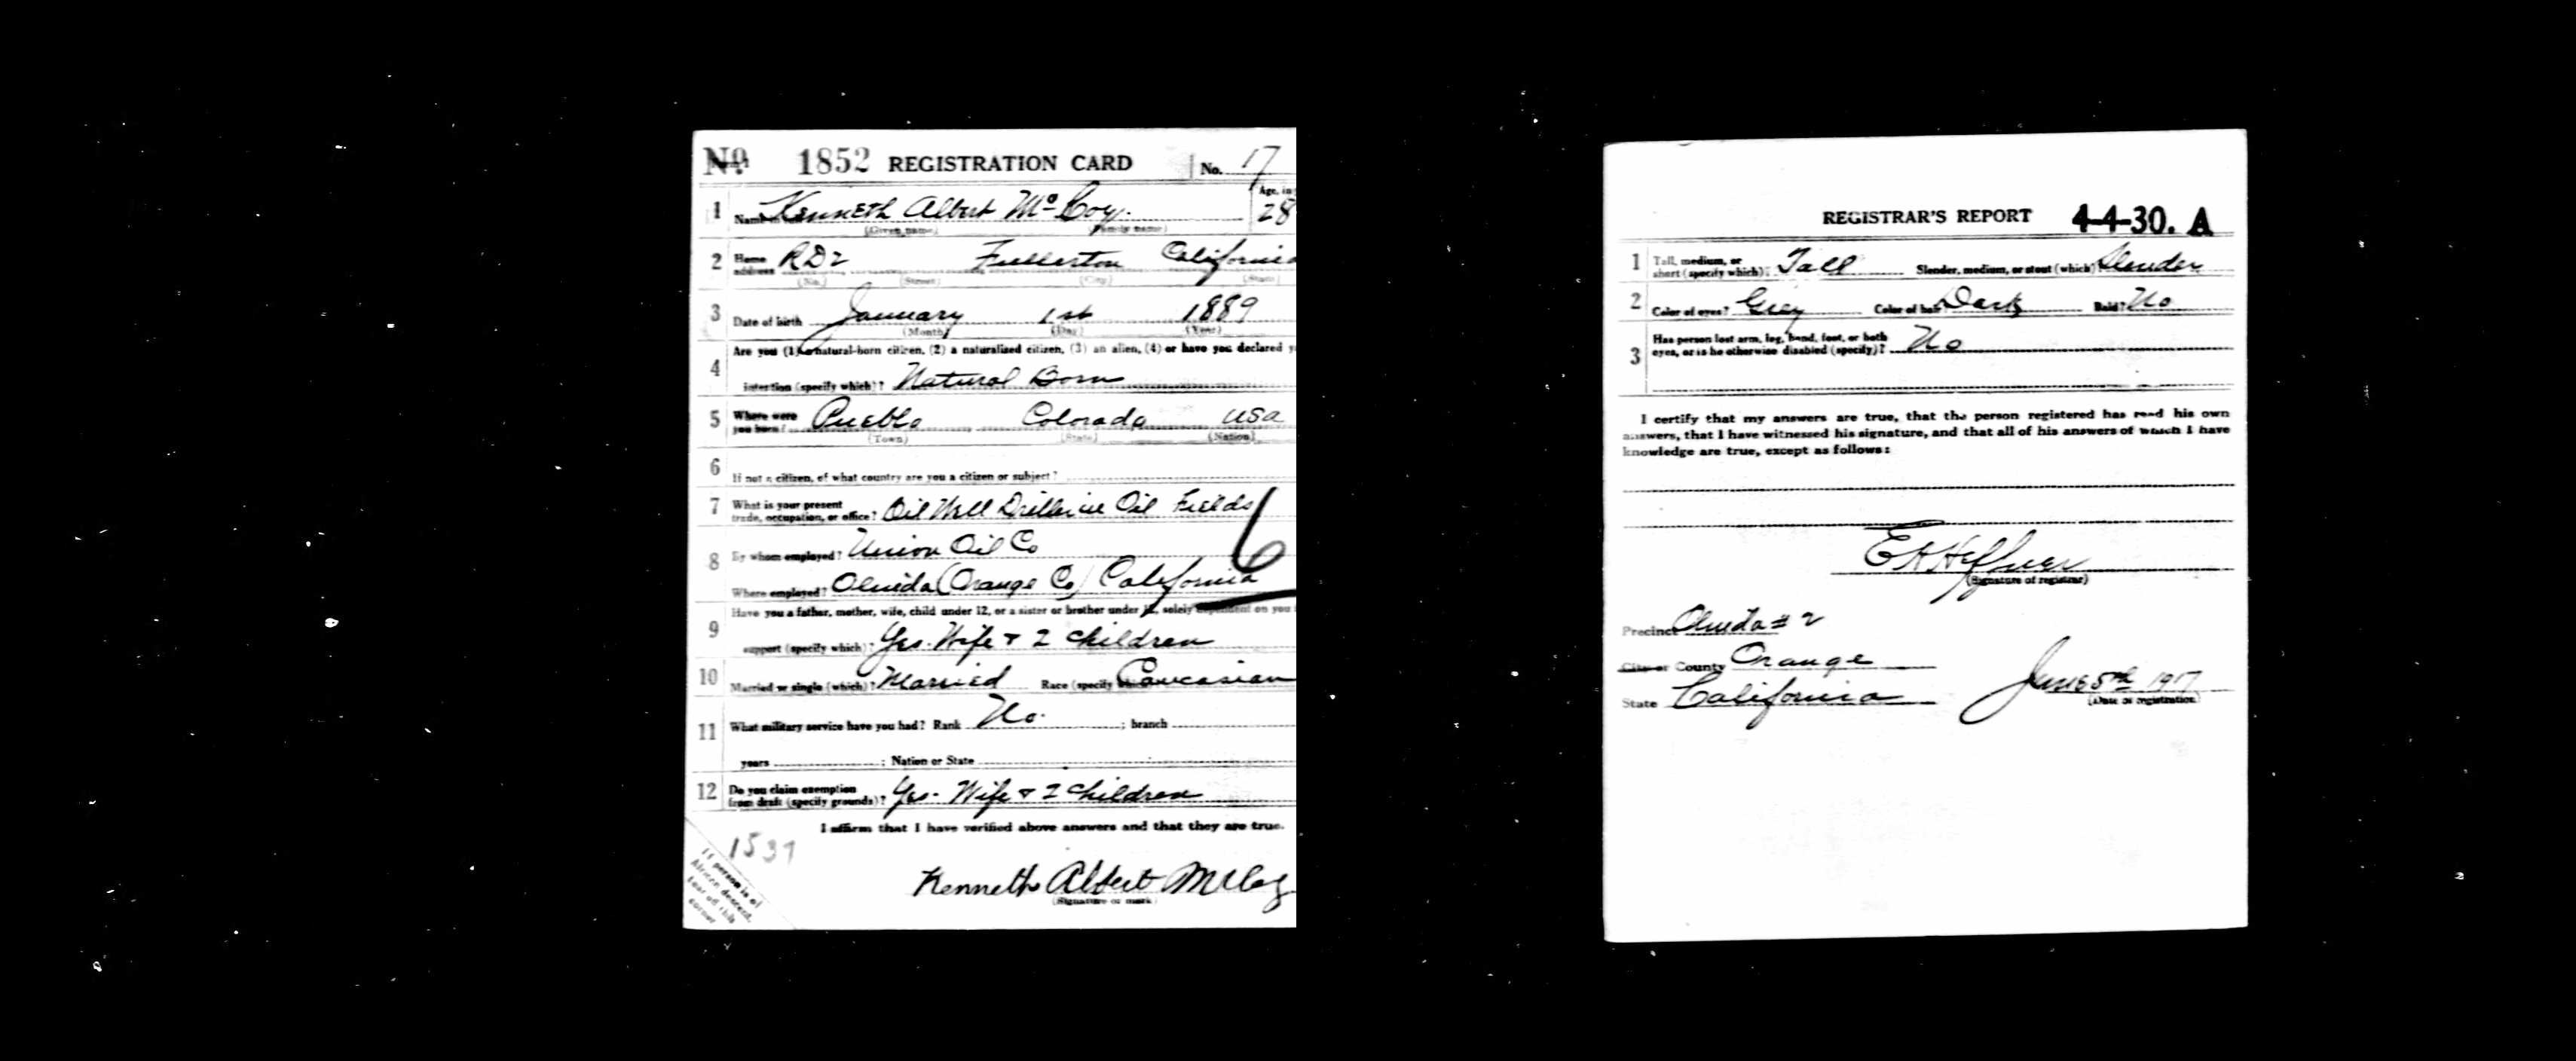 No. 1852 REGISTRATION CARD No. 17
1 Name in Kenneth Albert McCoy. Age, in 28
(Given name) (Family name)
2 Home address RD2 Fullerton California
(No.) (Street) (City) (State)
3 Date of birth January 1st 1889
(Month) (Day) (Year)
4 Are you (1) a natural-born citizen, (2) a naturalized citizen, (3) an alien, (4) or have you declared
intention (specify which)? Natural Born
5 Where were you born? Pueblo Colorado USA
(Town) (State) (Nation)
6 If not a citizen, of what country are you a citizen or subject?
7 What is your present trade, occupation, or office? Oil Well Oil Fields
8 By whom employed? Union Oil Co
Where employed? Olinda (Orange Co) California
6
9 Have you a father, mother, wife, child under 12, or a sister or brother under 12, solely dependent on you
support (specify which)? Yes. Wife & 2 children
10 Married or single (which)? Married Race (specify which) Caucasian
11 What military service have you had? Rank No. ; branch
years ; Nation or State
12 Do you claim exemption from draft (specify grounds)? Yes. Wife & 2 children
I affirm that I have verified above answers and that they are true.
1537
If person is of African descent, tear off this corner
Kenneth Albert McCoy
(Signature or mark)
REGISTRAR'S REPORT 4-4-30. A
1 Tall, medium, or short (specify which)? Tall Slender, medium, or stout (which)? Slender
2 Color of eyes? Grey Color of hair? Dark Bald? No
3 Has person lost arm, leg, hand, foot, or both eyes, or is he otherwise disabled (specify)? No
I certify that my answers are true, that the person registered has read his own
answers, that I have witnessed his signature, and that all of his answers of which I have
knowledge are true, except as follows:
E H Heffner
(Signature of registrar)
Precinct Olinda # 2
City or County Orange
State California June 5th 1917
(Date of registration)